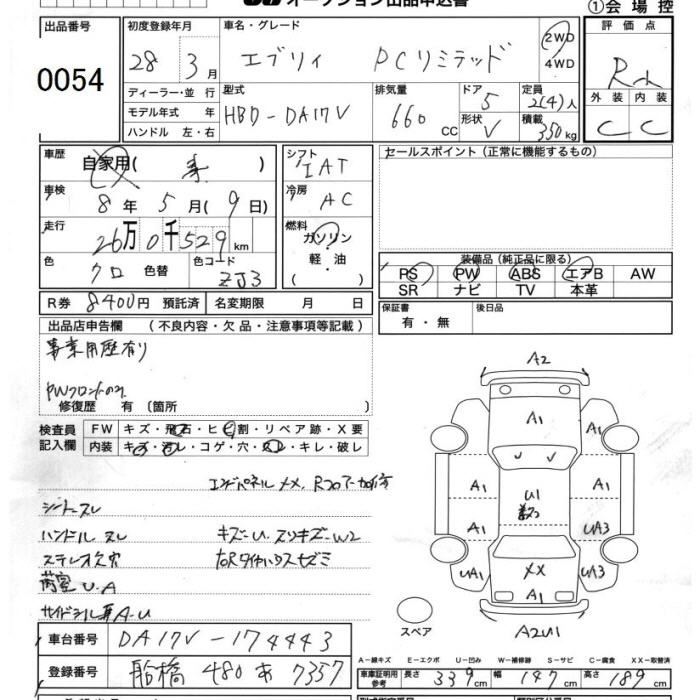 オークション出品申込書
①会場控
出品番号
0054
初度登録年月
28年 3月
車名・グレード
エブリィ PCリミテッド
2WD
4WD
評価点
RA
外装 内装
C C
ディーラー・並行
モデル年式 年
ハンドル 左・右
型式
HBD-DA17V
排気量
660 cc
ドア 5
形状 V
定員 2(4)人
積載 350kg
車歴
自家用( 事 )
車検
8年 5月( 9日)
走行
26万0千529km
色
クロ 色替
色コード
ZJ3
シフト
IAT
冷房
AC
燃料
ガソリン・
軽・油
( )
セールスポイント(正常に機能するもの)
装備品(純正品に限る)
PS PW ABS エアB AW
SR ナビ TV 本革
R券 8400円 預託済 名変期限 月 日
保証書
有・無
後日品
出品店申告欄 (不良内容・欠品・注意事項等記載)
事業用歴有り
PWフロントのみ
修復歴 有〔箇所 〕
検査員
記入欄
FW キズ・飛石・ヒビ割・リペア跡・X要
内装 キズ・汚レ・コゲ・穴・スレ・キレ・破レ
エンドパネルXX、Rフロアー
シートスレ
ハンドルスレ キズ-U スリキズ-W2
ステレオ欠品
荷室U.A
A2
A1
A1 A1
A1 U1 A1
A1 UA3
UA1 XX UA3
A1
A2U1
スペア
車台番号 DA17V-174443
登録番号 船橋 480 あ 7357
A-線キズ E-エクボ U-凹み W-補修跡 S-サビ C-腐食 XX-交換済
車庫証明用
参考
長さ 339cm 幅 147cm 高さ 189cm